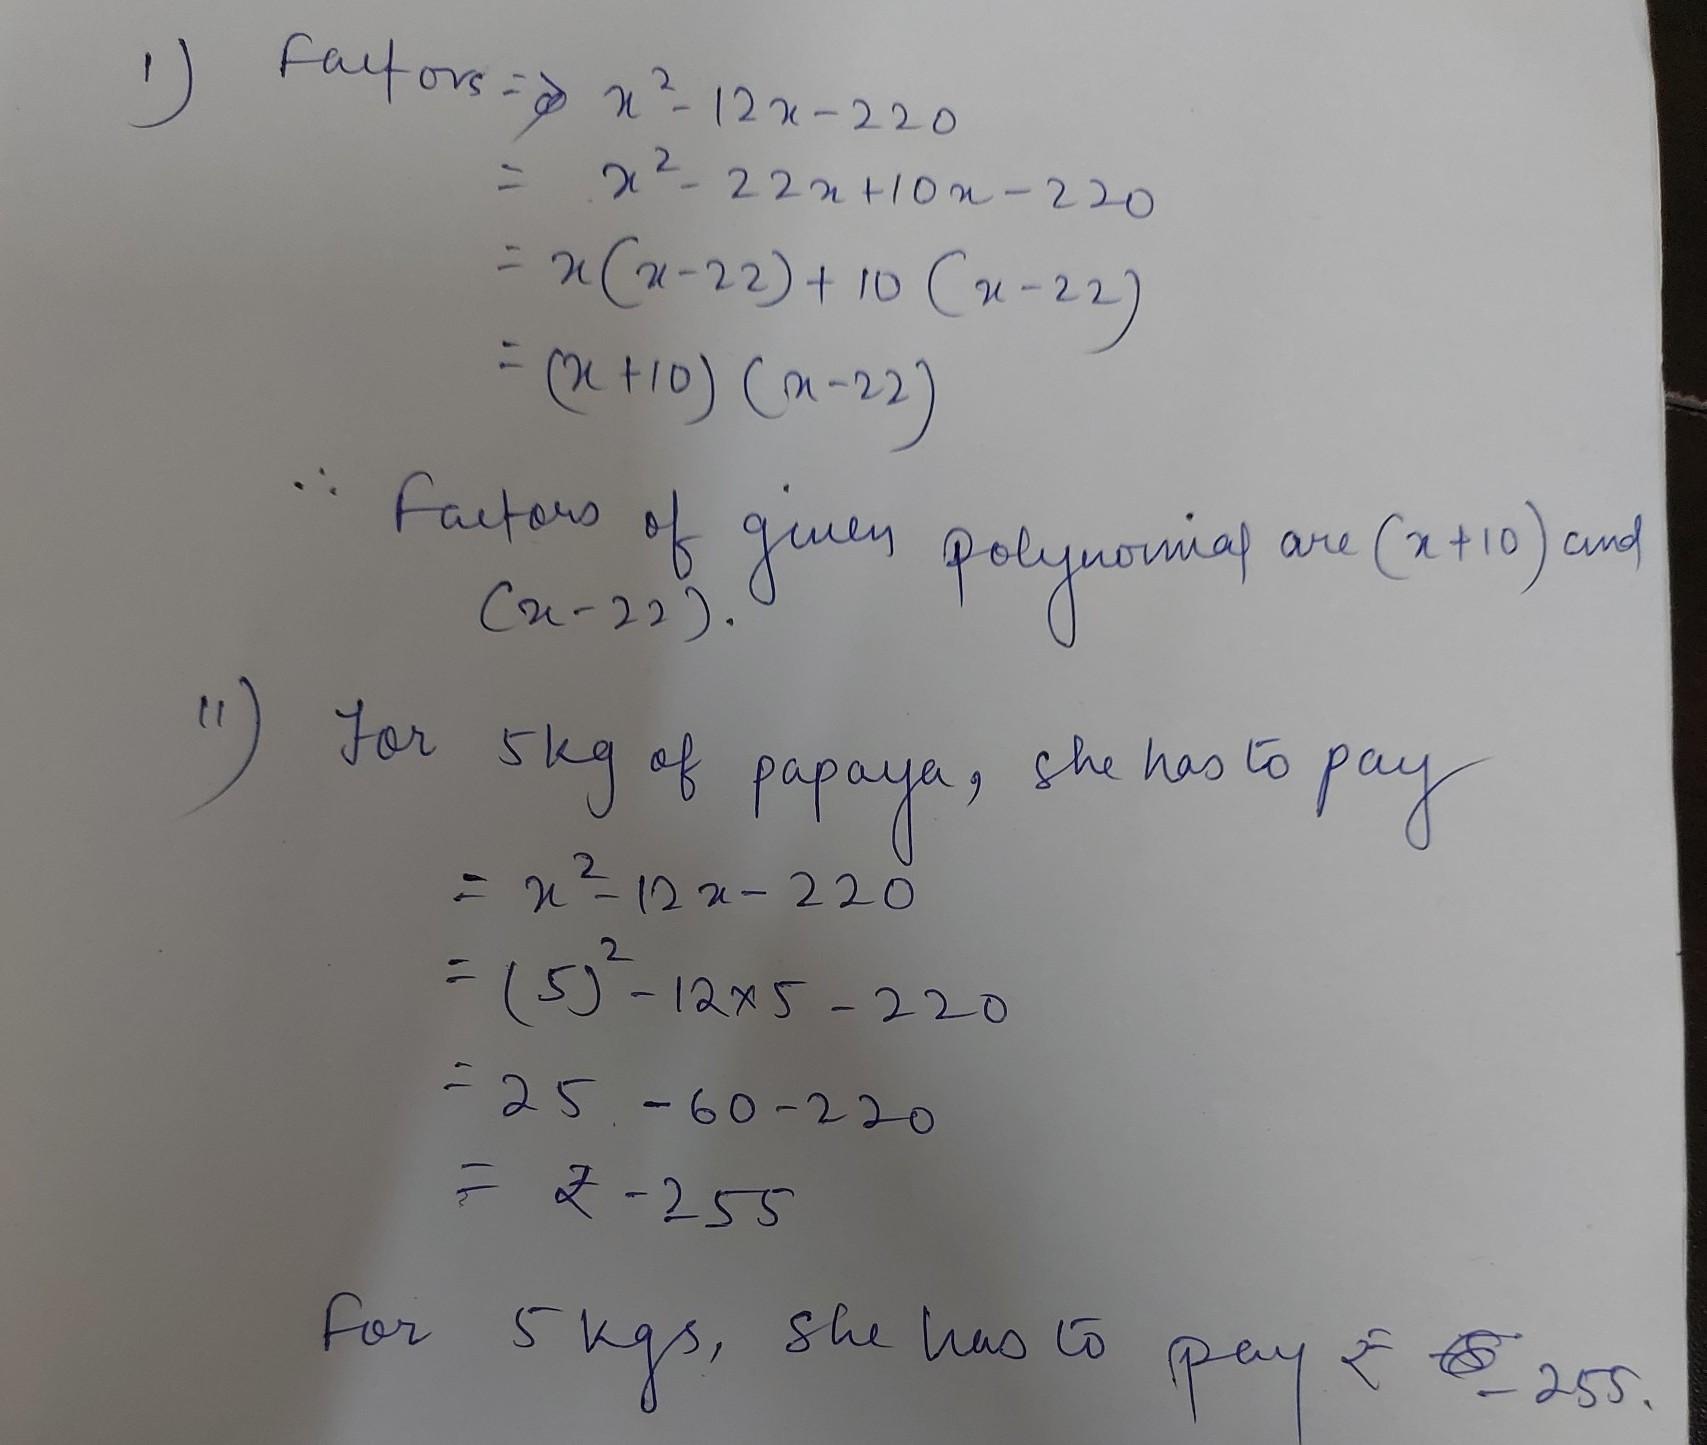 1) Factors => x² - 12x - 220
= x² - 22x + 10x - 220
= x(x-22) + 10 (x-22)
= (x+10) (x-22)
∴ Factors of given polynomial are (x+10) and
(x-22).
11) For 5kg of papaya, she has to pay
= x² - 12x - 220
= (5)² - 12×5 - 220
= 25 - 60 - 220
= ₹ -255
For 5 kgs, she has to pay ₹ -255.